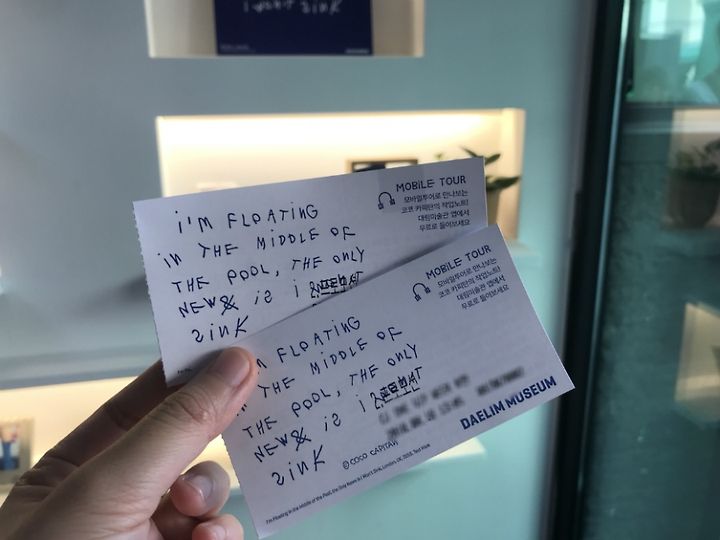 i'M FLOATING
iN THE MiDDLE OF
THE POOL, THE ONLY
NEWS iS i
SiNK
MOBiLE TOUR
모바일투어로 만나보는
코코 카피탄의 작업노트!
대림미술관 앱에서
무료로 들어보세요
M FLOATING
THE MiDDLE OF
THE POOL, THE ONLY
NEWS iS i
SiNK
MOBiLE TOUR
모바일투어로 만나보는
코코 카피탄의 작업노트!
대림미술관 앱에서
무료로 들어보세요
© COCO CAPITÁN
DAELIM MUSEUM
I'm Floating in the Middle of the Pool, the Only News Is I Won't Sink, London, UK,